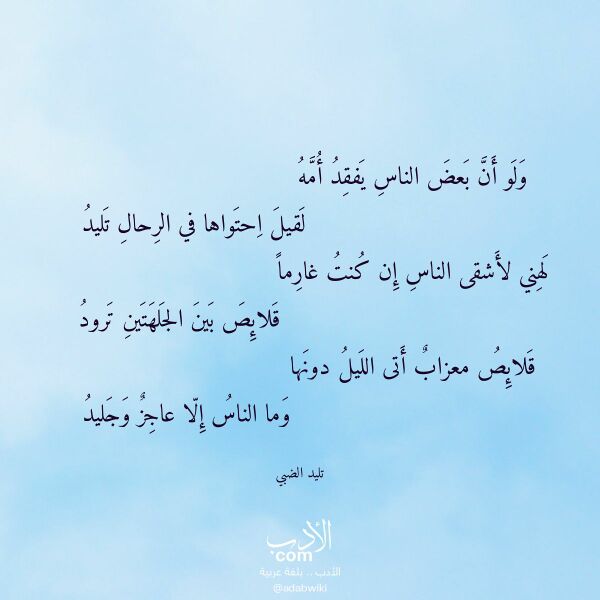 وَلَو أَنَّ بَعضَ الناسِ يَفقِدُ أُمَّهُ
لَقيلَ اِحتَواها في الرِحالِ تَليدُ
لَهِني لأَشقى الناسِ إِن كُنتُ غارِماً
قَلائِصَ بَينَ الجَلهَتَينِ تَرودُ
قَلائِصُ معزابٌ أَتى اللَيلُ دونَها
وَما الناسُ إِلّا عاجِزٌ وَجَليدُ
تليد الضبي
الأدب
com
الأدب .. بلغة عربية
@adabwiki